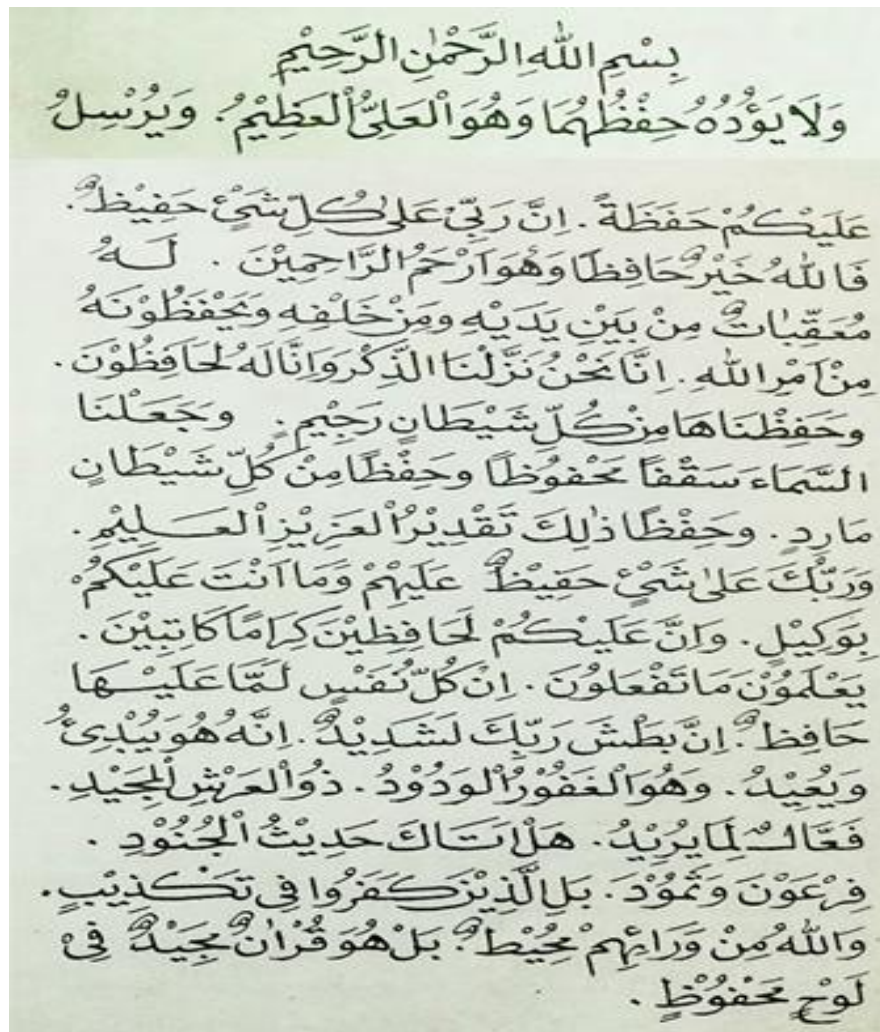 بِسْمِ اللهِ الرَّحْمٰنِ الرَّحِيْمِ
وَلَا يَؤُدُهُ حِفْظُهُمَا وَهُوَ الْعَلِيُّ الْعَظِيْمُ. وَيُرْسِلُ
عَلَيْكُمْ حَفَظَةً. اِنَّ رَبِّيْ عَلٰى كُلِّ شَيْءٍ حَفِيْظٌ.
فَاللهُ خَيْرٌ حَافِظًا وَهُوَ اَرْحَمُ الرَّاحِمِيْنَ. لَهُ
مُعَقِّبَاتٌ مِنْ بَيْنِ يَدَيْهِ وَمِنْ خَلْفِهِ وَيَحْفَظُوْنَهُ
مِنْ اَمْرِ اللهِ. اِنَّا نَحْنُ نَزَّلْنَا الذِّكْرَ وَاِنَّا لَهُ لَحَافِظُوْنَ.
وَحَفِظْنَاهَا مِنْ كُلِّ شَيْطَانٍ رَجِيْمٍ. وَجَعَلْنَا
السَّمَاءَ سَقْفًا مَحْفُوْظًا وَحِفْظًا مِنْ كُلِّ شَيْطَانٍ
مَارِدٍ. وَحِفْظًا ذٰلِكَ تَقْدِيْرُ الْعَزِيْزِ الْعَلِيْمِ.
وَرَبُّكَ عَلٰى شَيْءٍ حَفِيْظٌ عَلَيْهِمْ وَمَا اَنْتَ عَلَيْكُمْ
بِوَكِيْلٍ. وَاِنَّ عَلَيْكُمْ لَحَافِظِيْنَ كِرَامًا كَاتِبِيْنَ.
يَعْلَمُوْنَ مَا تَفْعَلُوْنَ. اِنْ كُلُّ نَفْسٍ لَمَّا عَلَيْهَا
حَافِظٌ. اِنَّ بَطْشَ رَبِّكَ لَشَدِيْدٌ. اِنَّهُ هُوَ يُبْدِئُ
وَيُعِيْدُ. وَهُوَ الْغَفُوْرُ الْوَدُوْدُ. ذُو الْعَرْشِ الْمَجِيْدِ.
فَعَّالٌ لِمَا يُرِيْدُ. هَلْ اَتَاكَ حَدِيْثُ الْجُنُوْدِ.
فِرْعَوْنَ وَثَمُوْدَ. بَلِ الَّذِيْنَ كَفَرُوا فِى تَكْذِيْبٍ.
وَاللهُ مِنْ وَرَائِهِمْ مُحِيْطٌ. بَلْ هُوَ قُرْاٰنٌ مَجِيْدٌ فِيْ
لَوْحٍ مَحْفُوْظٍ.